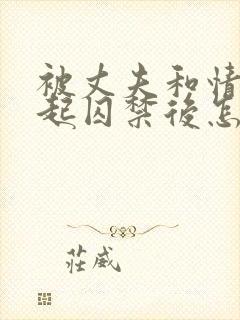 被丈夫和情
起囚禁後怎
莊威